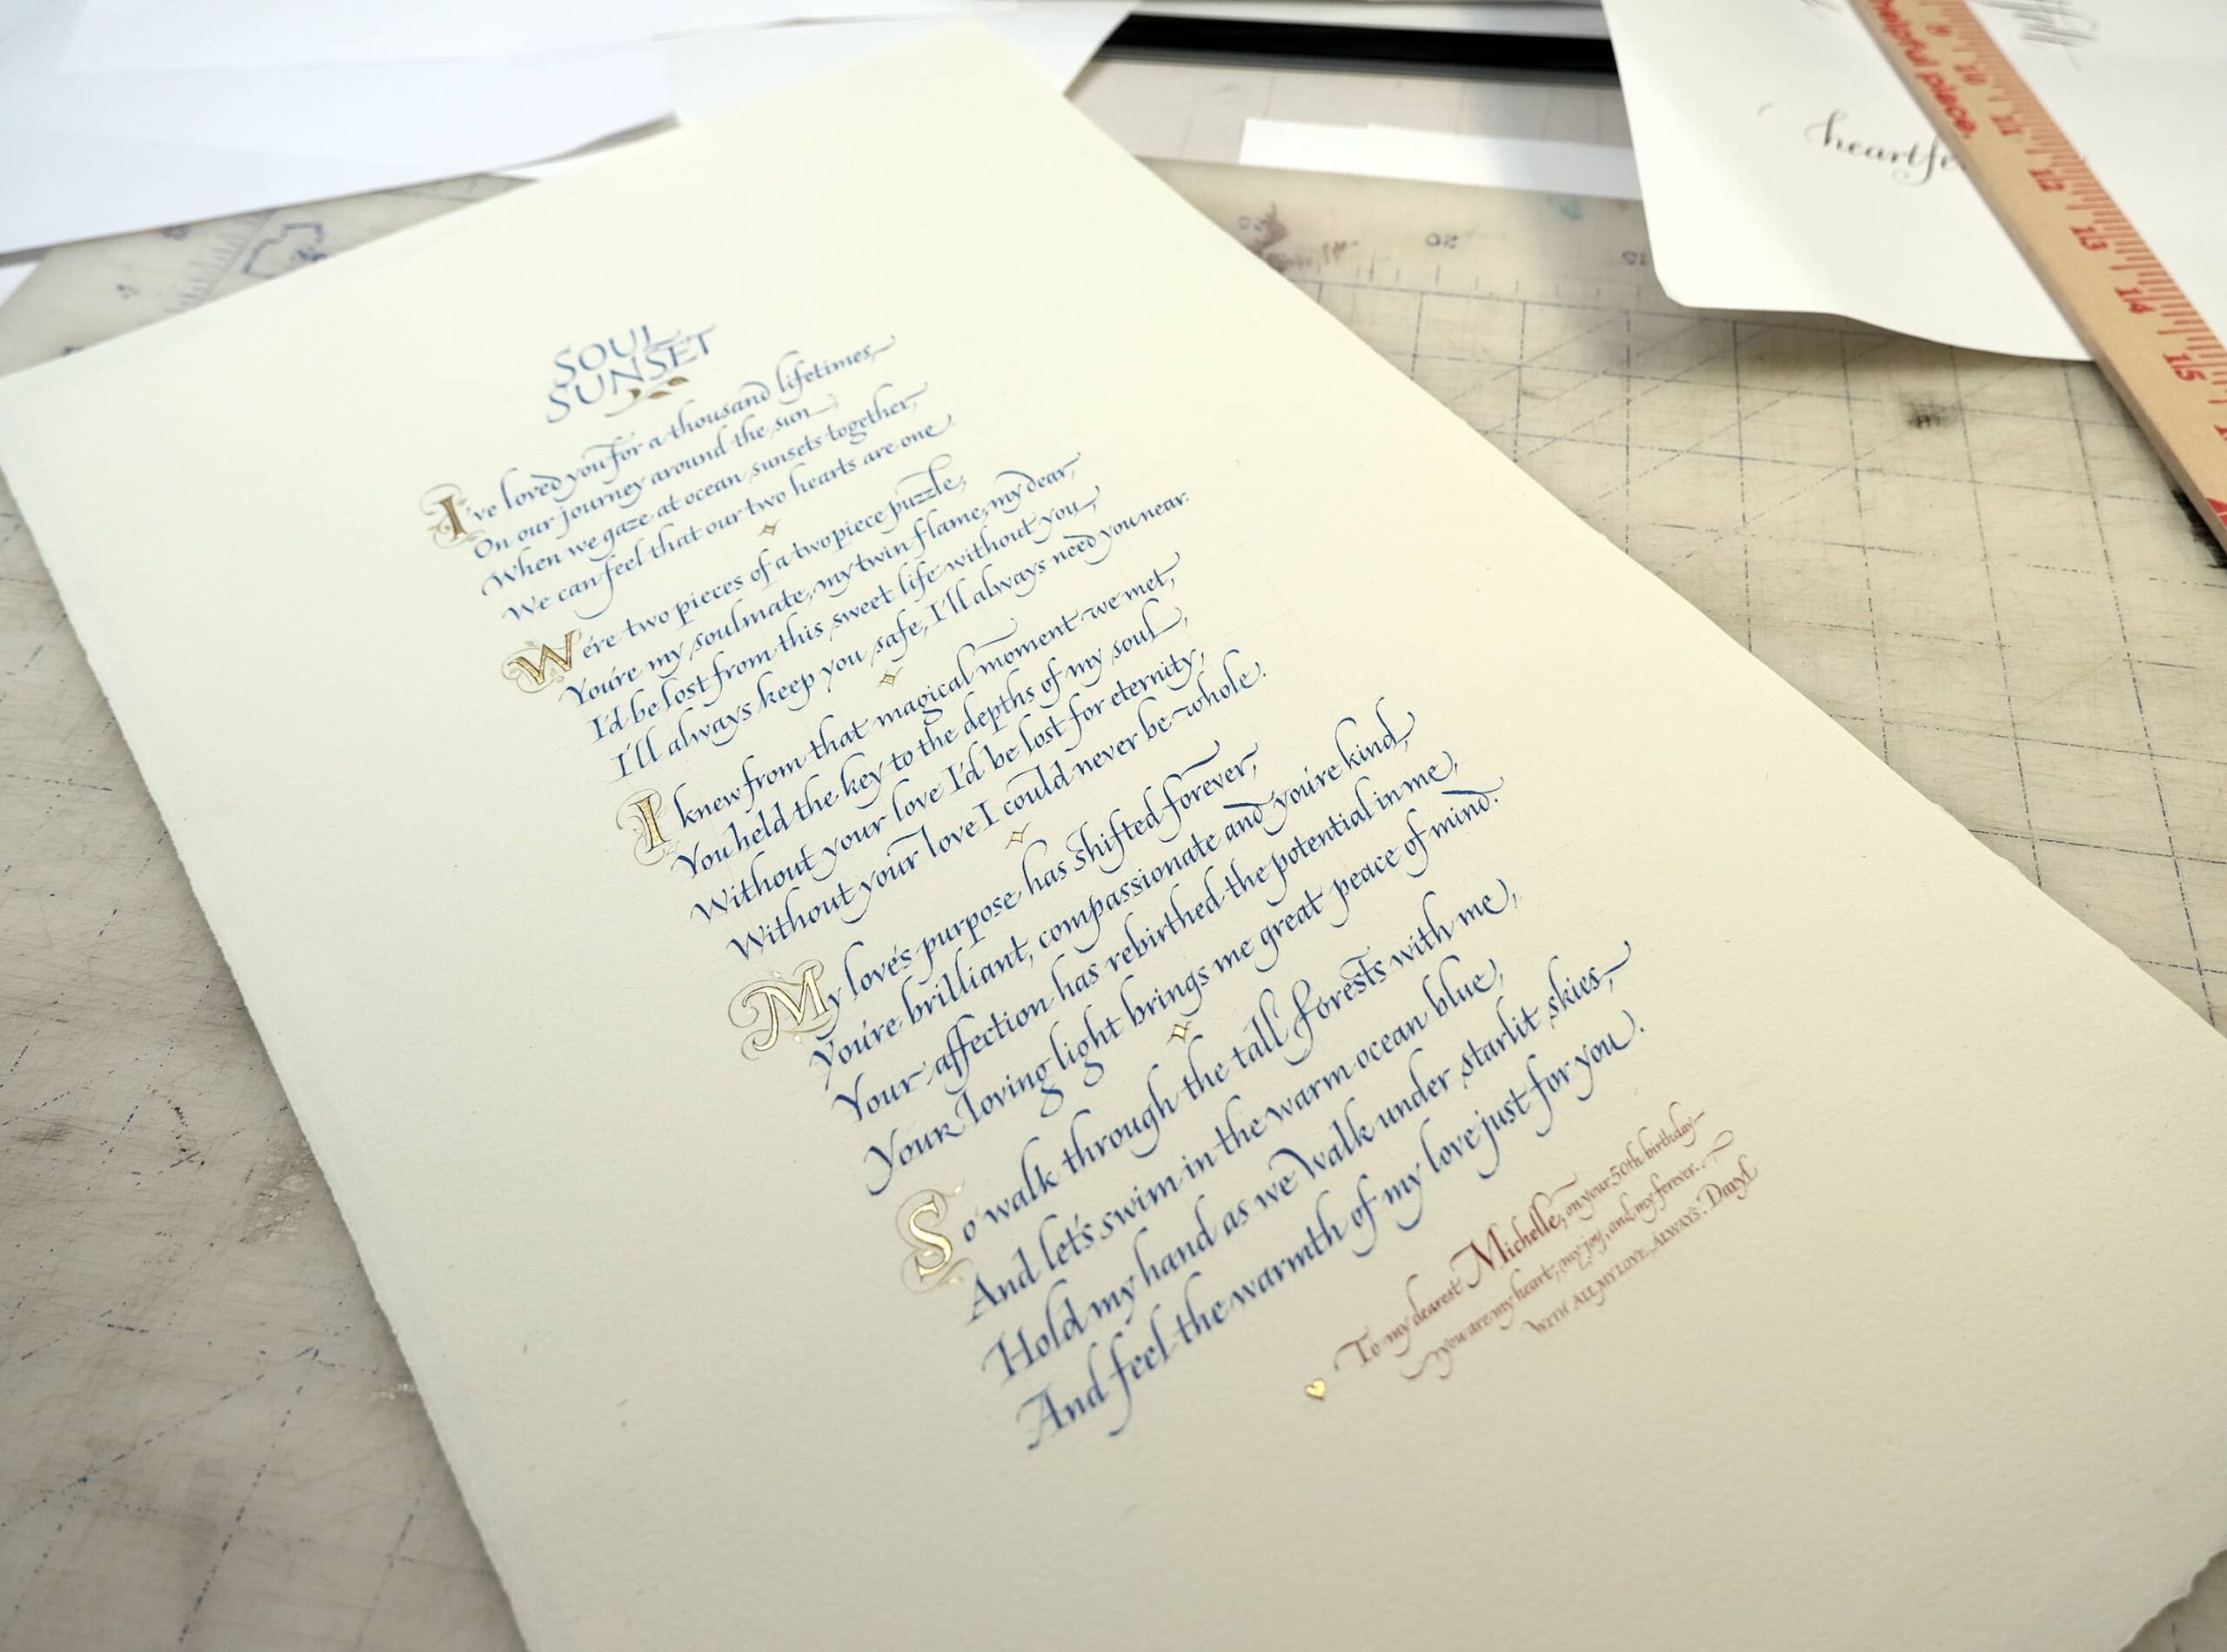 SOUL
SUNSET
I've loved you for a thousand lifetimes,
On our journey around the sun,
When we gaze at ocean sunsets together,
We can feel that our two hearts are one.
We're two pieces of a two piece puzzle,
You're my soulmate, my twin flame, my dear,
I'd be lost from this sweet life without you,
I'll always keep you safe, I'll always need you near.
I knew from that magical moment we met,
You held the key to the depths of my soul,
Without your love I'd be lost for eternity,
Without your love I could never be whole.
My love's purpose has shifted forever,
You're brilliant, compassionate and you're kind,
Your affection has rebirthed the potential in me,
Your loving light brings me great peace of mind.
So walk through the tall forests with me,
And let's swim in the warm ocean blue,
Hold my hand as we walk under starlit skies,
And feel the warmth of my love just for you.
To my dearest Michelle, on your 50th birthday—
you are my heart, my joy, and my forever.
WITH ALL MY LOVE, ALWAYS, Daryl
heartfe
helpful piece.
9 10 11 12 13 14 15
20